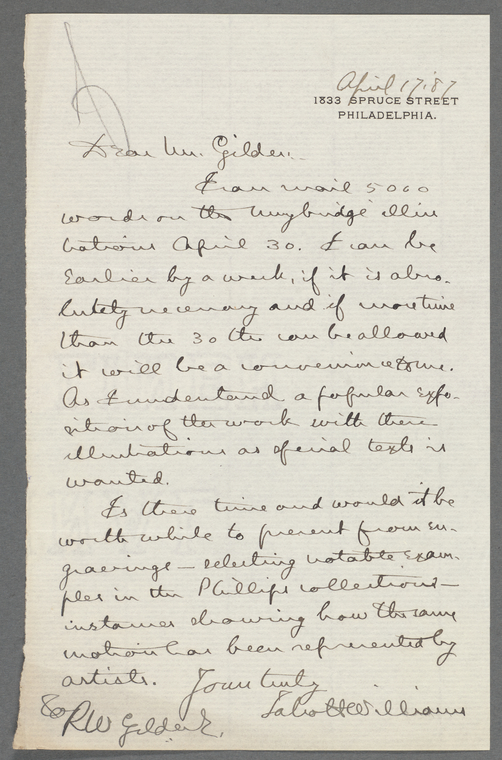 April 17. '87
1833 SPRUCE STREET
PHILADELPHIA.
Dear Mr. Gilder:
I can mail 5000
words on the Muybridge illus
trations April 30. I can be
earlier by a week, if it is abso-
lutely necessary and if more time
than the 30th can be allowed
it will be a convenience to me.
As I understand a popular expo-
sition of the work with these
illustrations as special texts is
wanted.
Is there time and would it be
worth while to present from en-
gravings – selecting notable exam-
ples in the Phillips collections –
instances showing how the same
motion has been represented by
artists.
Yours truly
Talcott Williams
To R W Gilder